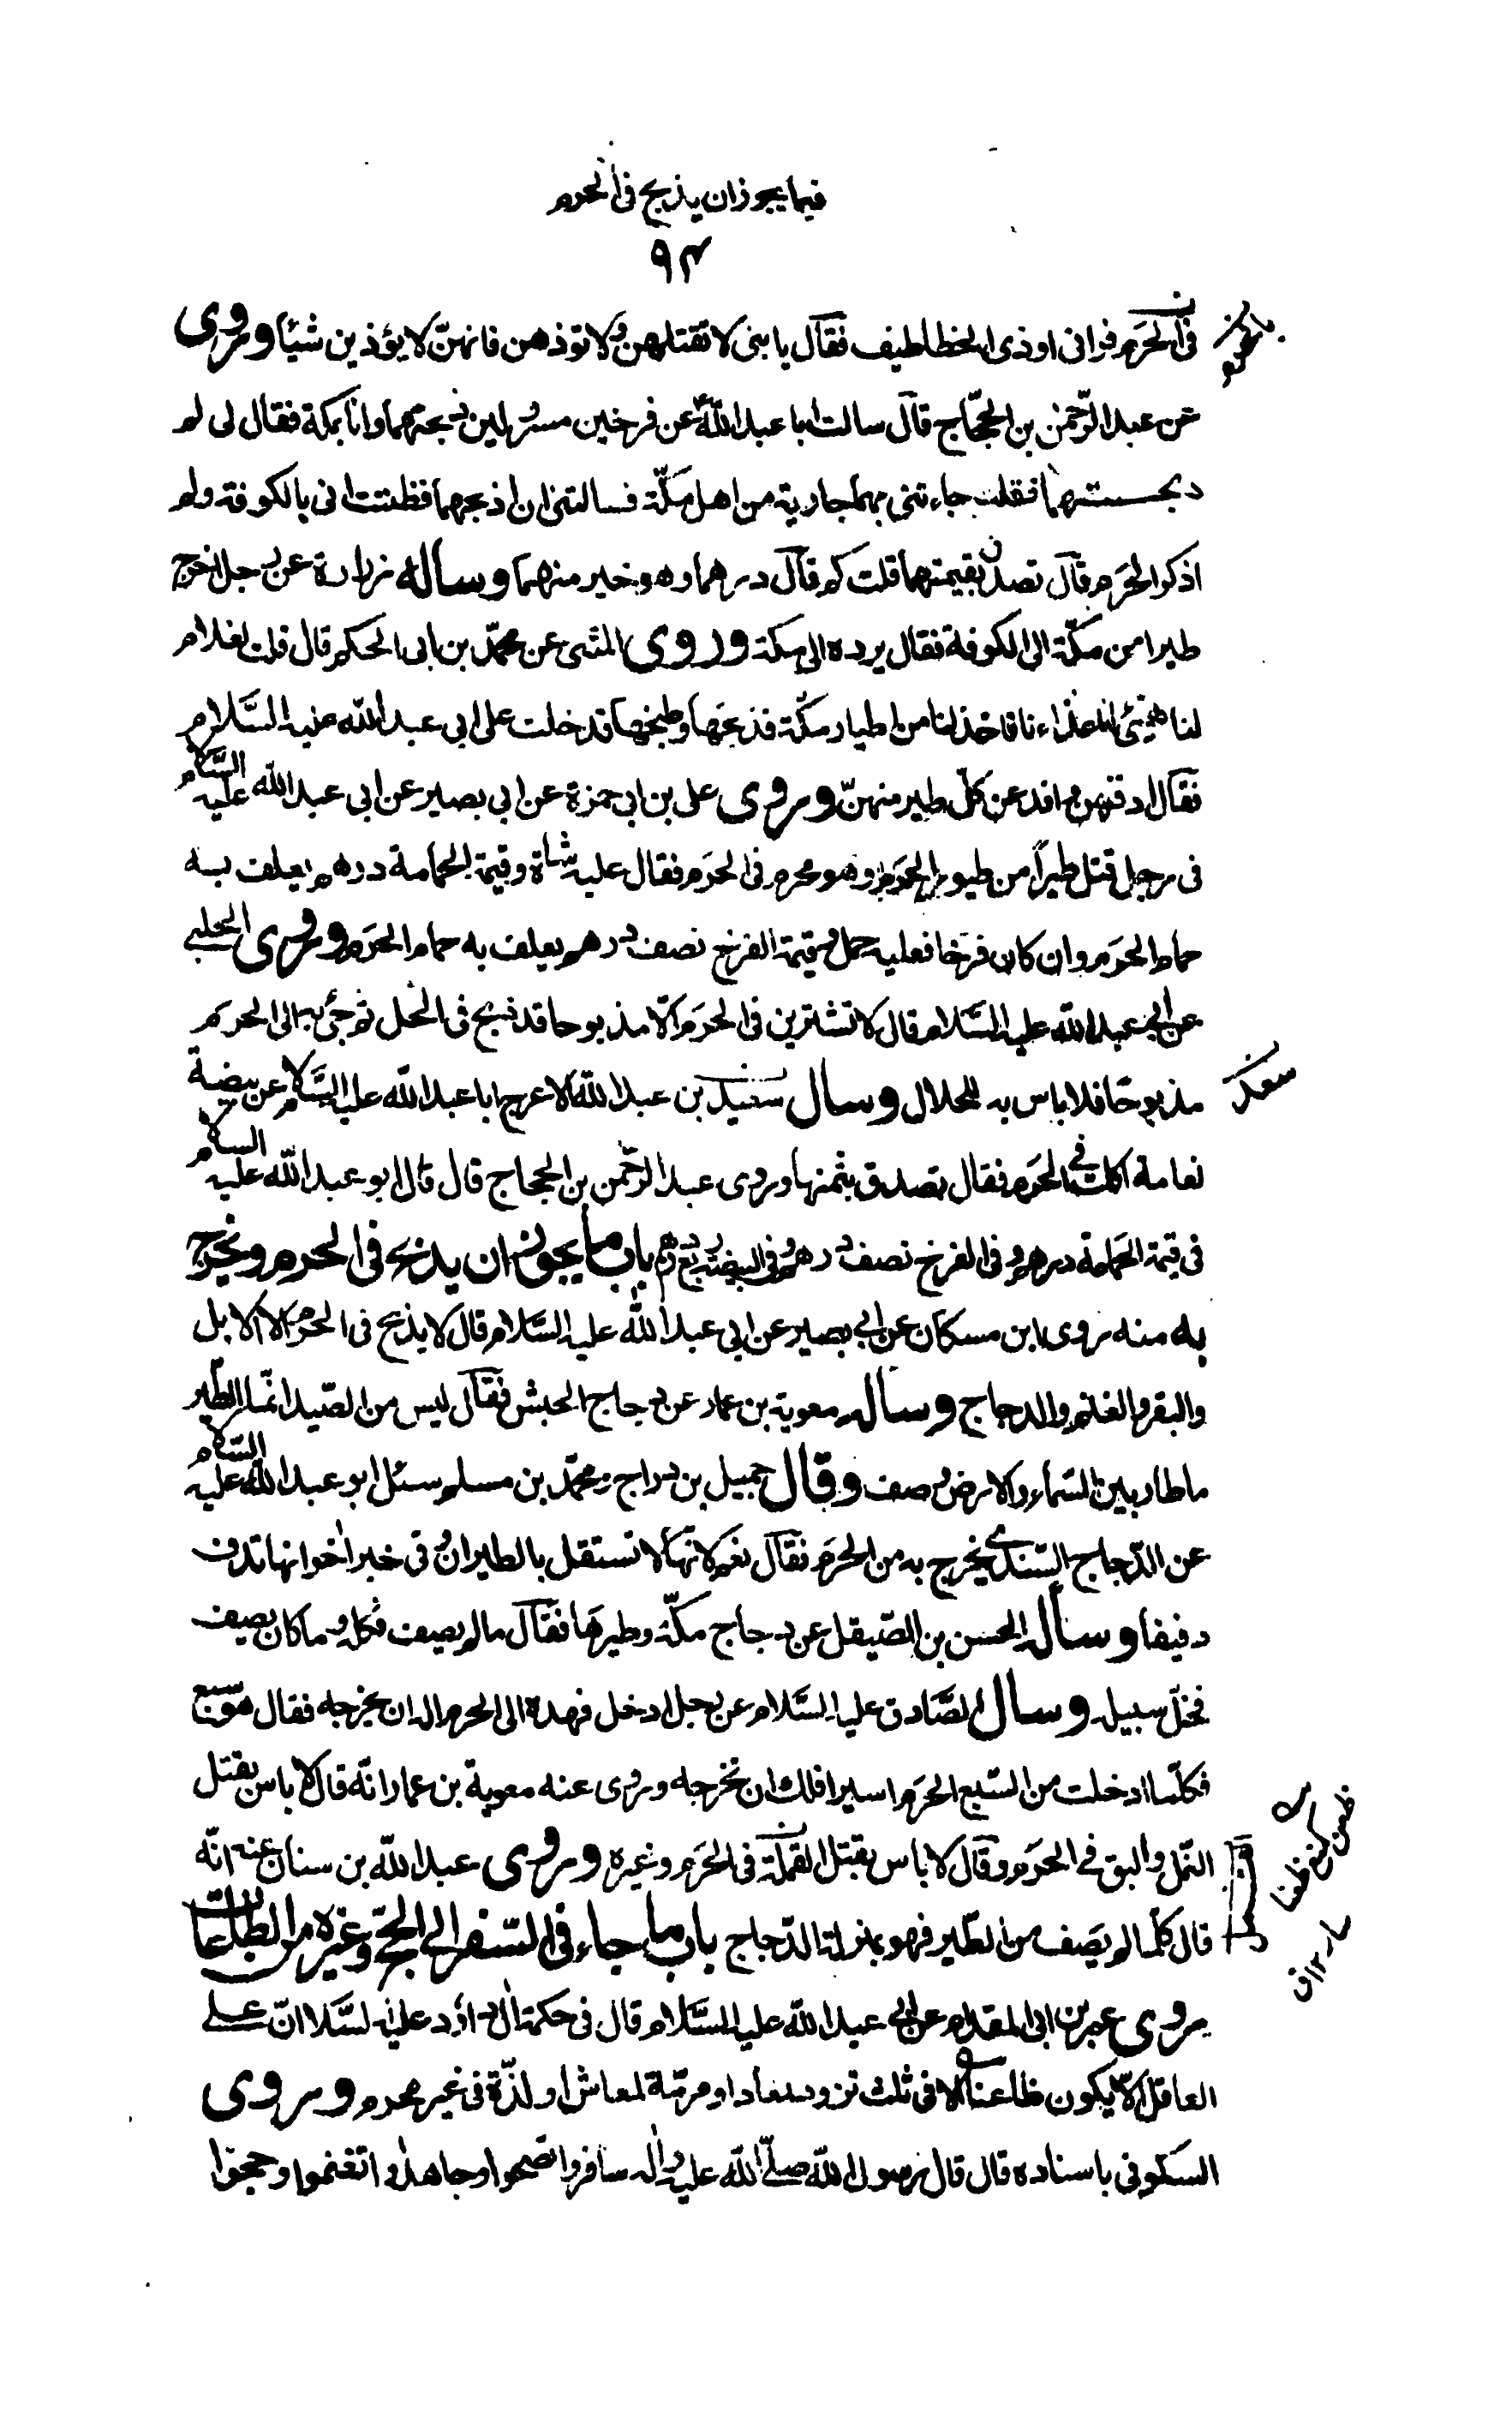 فيما يجوز ان يذبح فى الحرم
٩٣
فى الحرم فرانى اوذى الخطاطيف فقال يا بنى لا تقتلهن ولا توذهن فانهنّ لا يؤذين شيئا وروى
عن عبد الرّحمن بن الحجّاج قال سالت ابا عبد اللّه عن فرخين مسرولين ذبحتهما وانا بمكة فقال لى لم
ذبحتهما فقلت جاءتنى بهما جارية من اهل مكّة فسالتنى ان اذبحهما فظننت انى بالكوفة ولم
اذكر الحرم قال تصدق بقيمتهما قلت كم قال درهما وهو خير منهما وساله زرارة عن رجل اخرج
طيرا من مكّة الى الكوفة فقال يرده الى مكة وروى المثنى عن محمّد بن ابى الحكم قال قلت لغلام
لنا هيئ لنا غذاءنا فاخذ لنا من اطيار مكّة فذبحها وطبخها فدخلت على ابى عبد اللّه عليه السّلام
فقال ادفنهن وافد عن كلّ طير منهنّ وروى على بن ابى حمزة عن ابى بصير عن ابى عبد اللّه عليه السّلام
فى رجل قتل طيراً من طيور الحرم وهو محرم فى الحرم فقال عليه شاة وقيمة الحمامة درهم يعلف به
حمام الحرم وان كان فرخا فعليه حمل وقيمة الفرخ نصف درهم يعلف به حمام الحرم وروى الحلبى
عن ابى عبد اللّه عليه السّلام قال لا تشترين فى الحرم الّا مذبوحا قد ذبح فى الحل ثم جئ به الى الحرم
مذبوحًا فلا باس به للحلال وسال سعيد بن عبد اللّه الاعرج ابا عبد اللّه عليه السّلام عن بيضة
نعامة اكلت فى الحرم فقال تصدق بثمنها وروى عبد الرّحمن بن الحجاج قال قال ابو عبد اللّه عليه السلام
فى قيمة الحمامة درهم وفى الفرخ نصف درهم وفى البيضة ربع درهم باب ما يجوز ان يذبح فى الحرم ويخرج
به منه روى ابن مسكان عن ابى بصير عن ابى عبد اللّه عليه السّلام قال لا يذبح فى الحرم الا الابل
والبقر والغنم والدجاج وساله معوية بن عمار عن دجاج الحبش فقال ليس من الصّيد انّما الطّير
ما طار بين السّماء والارض وصف وقال جميل بن درّاج ومحمّد بن مسلم سئل ابو عبد اللّه عليه السّلام
عن الدّجاج السّندى يخرج به من الحرم فقال نعم لانّها لا تستقل بالطيران وفى خبر اخر انها تدف
دفيفا وساله الحسن بن الصّيقل عن دجاج مكّة وطيرها فقال ما لم يصف فكله وما كان يصف
فخلّ سبيله وسال الصّادق عليه السّلام عن رجل ادخل فهده الى الحرم اله ان يخرجه فقال هو سبع
فكلّما ادخلت من السّبع الحرم اسيرا فلك ان تخرجه وروى عنه معوية بن عمار انّه قال لا باس بقتل
النّمل والبق فى الحرم وقال لا باس بقتل القملة فى الحرم وغيره وروى عبد اللّه بن سنان عنه انّه
قال كلّما لم يصف من الطّير فهو بمنزلة الدّجاج باب ما جاء فى السّفر الى الحجّ وغيره من الطاعات
روى عمر بن ابى المقدام عن ابى عبد اللّه عليه السّلام قال فى حكمة ال داود عليه السّلام انّ على
العاقل الّا يكون ظاعنا الا فى ثلث تزود لمعاد او مرمّة لمعاش او لذّة فى غير محرم وروى
السكونى باسناده قال قال رسول اللّه صلّى اللّه عليه واله سافروا تصحوا وجاهدوا تغنموا وحجوا